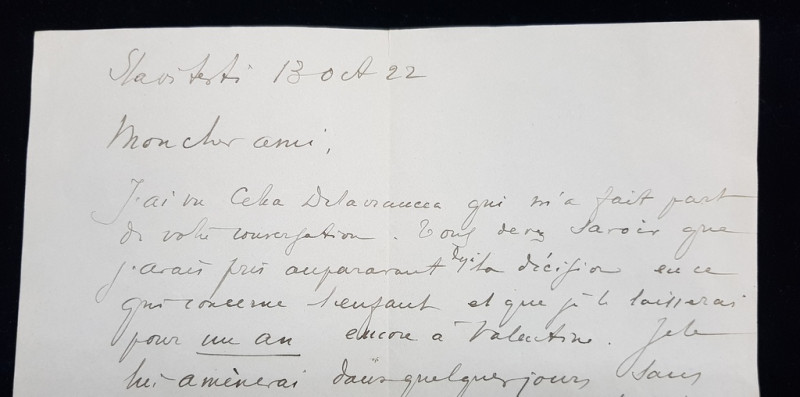 Slavitesti 13 oct 22
Mon cher ami,
J'ai vu Cella Delavrancea qui m'a fait part
de votre conversation. Vous devez savoir que
j'avais pris auparavant déjà la décision en ce
qui concerne l'enfant et que je le laisserai
pour un an encore à Valentine. Je le
lui amènerai dans quelques jours sans